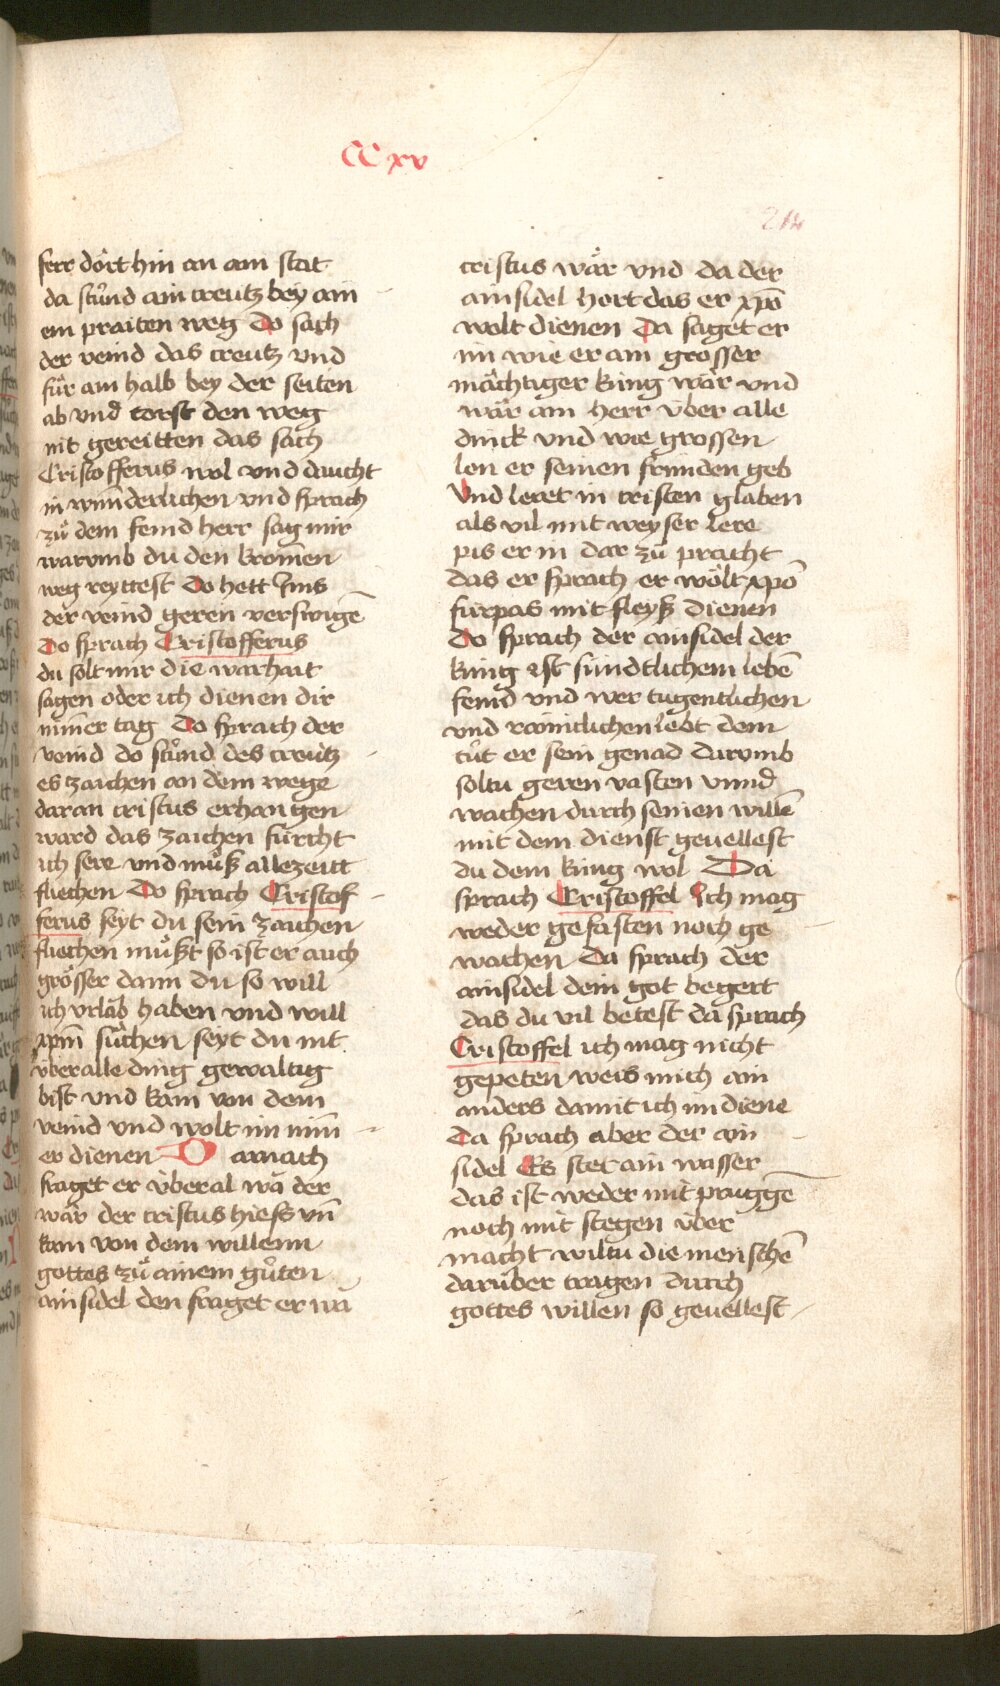 CCxv
214
ferr dört hin an ain stat
da stůnd ain creutz bey ain
em praiten weg Do sach
der veind das creutz vnd
für ain halb bey der seiten
ab vnd torst den weg
nit gereitten das sach
Cristofferus wol vnd daucht
in wunderlichen vnd sprach
zů dem feind herr sag mir
warvmb du den kromen
weg reyttest Do hett Ims
der veind geren verswigē
Do sprach Cristofferus
du solt mir die warhait
sagen oder ich dienen dir
nim̄er tag Do sprach der
veind do stůnd des creutz
es zaichen an dem wege
daran cristus erhangen
ward das zaichen fürcht
ich sere vnd můß allezeitt
fliechen Do sprach Cristof
ferus seyt du sein zaichen
fliechen můßt so ist er auch
grösser dann du so will
ich vrlab haben vnd will
xpm̄ sůchen seyt du nit
vber alle ding gewaltig
bist vnd kam von dem
veind vnd wolt im nim̄
er dienen Darnach
fraget er vberal wa der
wär der cristus hiess vn̄
kam von dem willenn
gottes zů ainem gůten
ainsidel den fraget er wa
cristus wär vnd da der
ainsidel hort das er xpō
wolt dienen Da saget er
im wie er ain grosser
mächtiger king wär vnd
wär ain herr über alle
dinck vnd wie grossen
lon er seinen frinden geb
Vnd leret in cristen glaben
als vil mit weyser lere
pis er in dar zů pracht
das er sprach er wölt xpō
fürpas mit fleyß dienen
Do sprach der ainsidel der
king ist sündtlichem lebē
feind vnd wer tugentlichen
vnd rainiclichen lebt dem
tůt er sein genad darvmb
soltu geren vasten vnnd
wachen durch seinen willē
mit dem dienst geuellest
du dem king wol Da
sprach Cristoffel Ich mag
weder gefasten noch ge
wachen Da sprach der
ainsidel dein got begert
das du vil betest da sprach
Cristoffel ich mag nicht
gepeten weis mich ain
anders damit ich im diene
Da sprach aber der ain
sidel Es stet ain wasser
das ist weder mit pruggē
noch mit stegen vber
macht wiltu die menschē
darüber tragen durch
gottes willen so geuellest